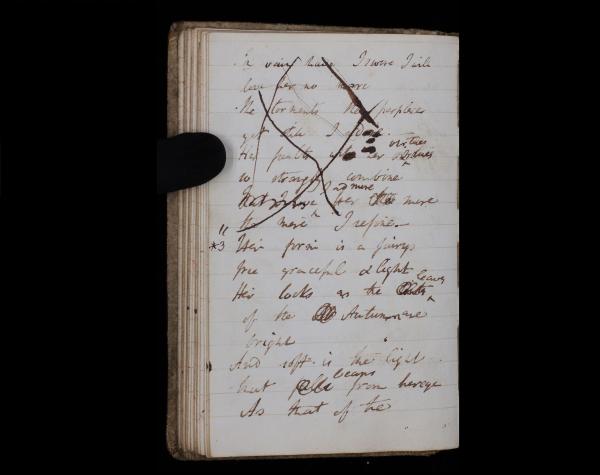 In vain have I swore I will
love her no more
He torments he perplexes
yet still I adore
Her faults with her virtues
so strangely combine
That I admire her the more
the more I refine —
"
*3 Her form is a fairys
free graceful & light
Her locks as the leaves
of the Autumn are
bright
And soft is the light
that beams from her eye
As that of the